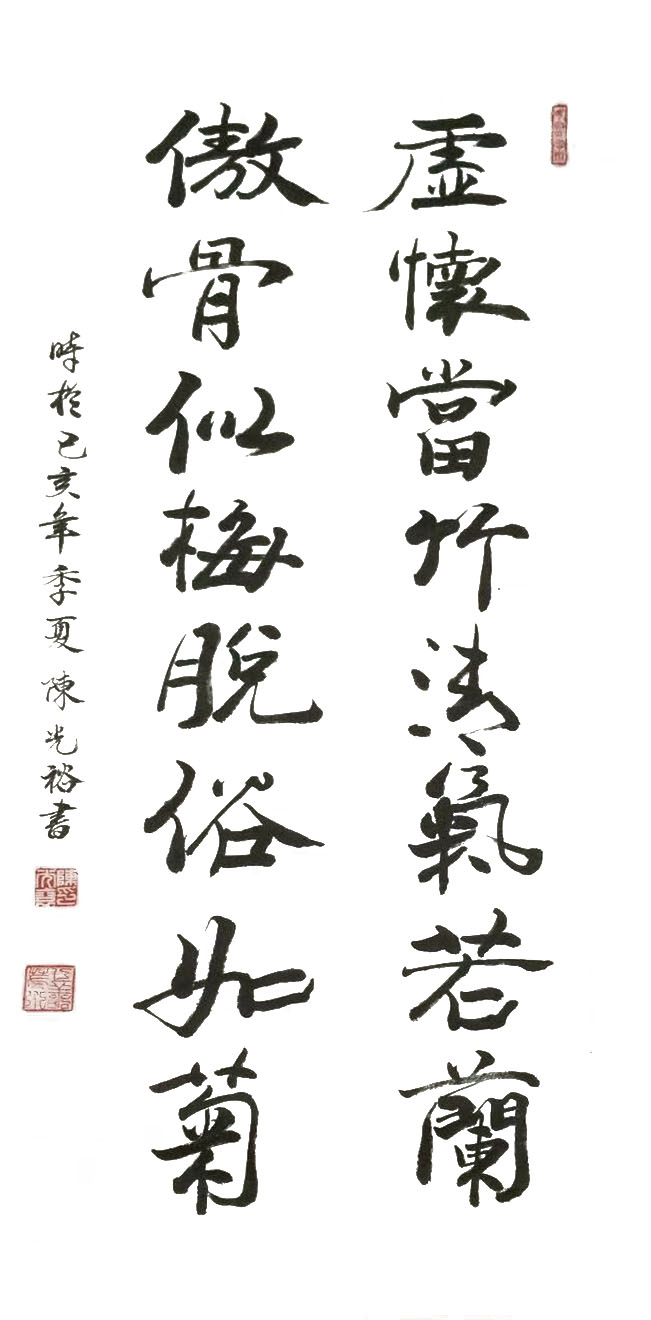 虛懷當竹清氣若蘭
傲骨似梅脫俗如菊
時於己亥年季夏陳光裕書